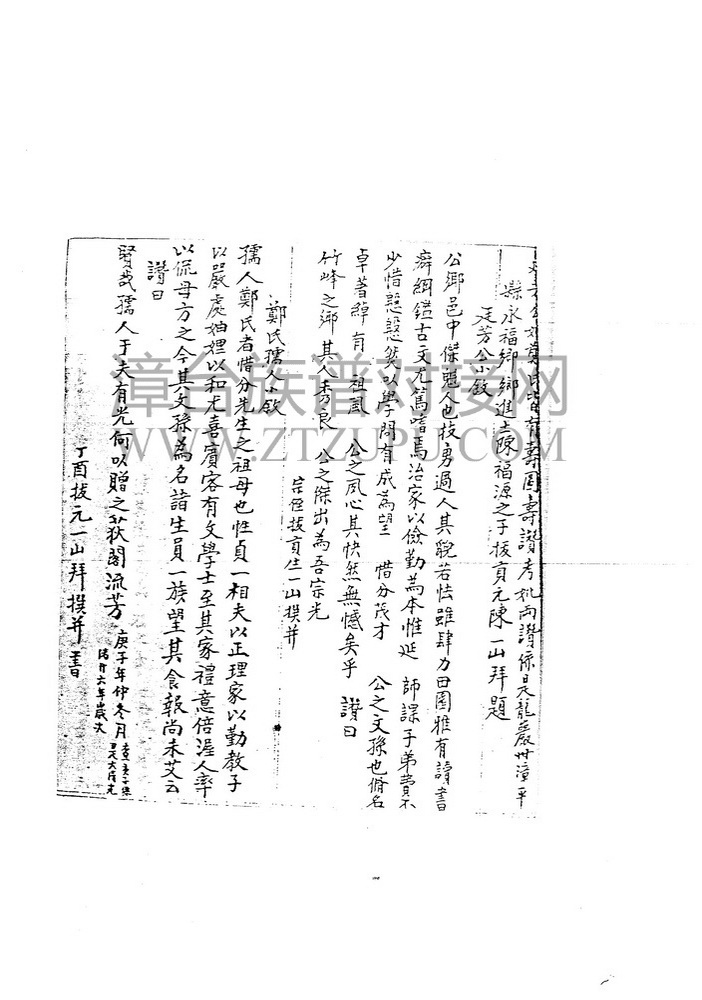 公妣鄭氏皆有壽圖壽讚考妣两讚係是龍嚴卅漳平
縣永福鄉鄉進士陳福源之子拔貢元陳一山拜題
廷芳公小敘
公鄉邑中傑兎人也技勇過人其貌若怯雖肆力田園雅有讀書
癖綱鑑古文尤篤嗜焉治家以儉勤為本惟延 師課子弟費不
少惜慇慇然以學問有成為望 惜分茂才 公之文孫也脩名
卓著綽有 祖風 公之夙心其快然無憾矣乎 讚曰
竹峰之鄉其人秀良 公之傑出為吾宗光
宗侄拔貢生一山撰并
鄭氏孺人小敘
孺人鄭氏者惜分先生之祖母也性貞一相夫以正理家以勤教子
以嚴處妯娌以和尤喜賓客有文學士至其家禮意倍渥人率
以侃母方之今其文孫為名諸生員一族望其食報尚未艾云
讚曰
賢哉孺人于夫有光何以贈之荻閣流芳
庚子年仲冬月
六年歲次
丁酉拔元一山拜撰并書
漳台族谱对接网
WWW.ZTZUPU.COM